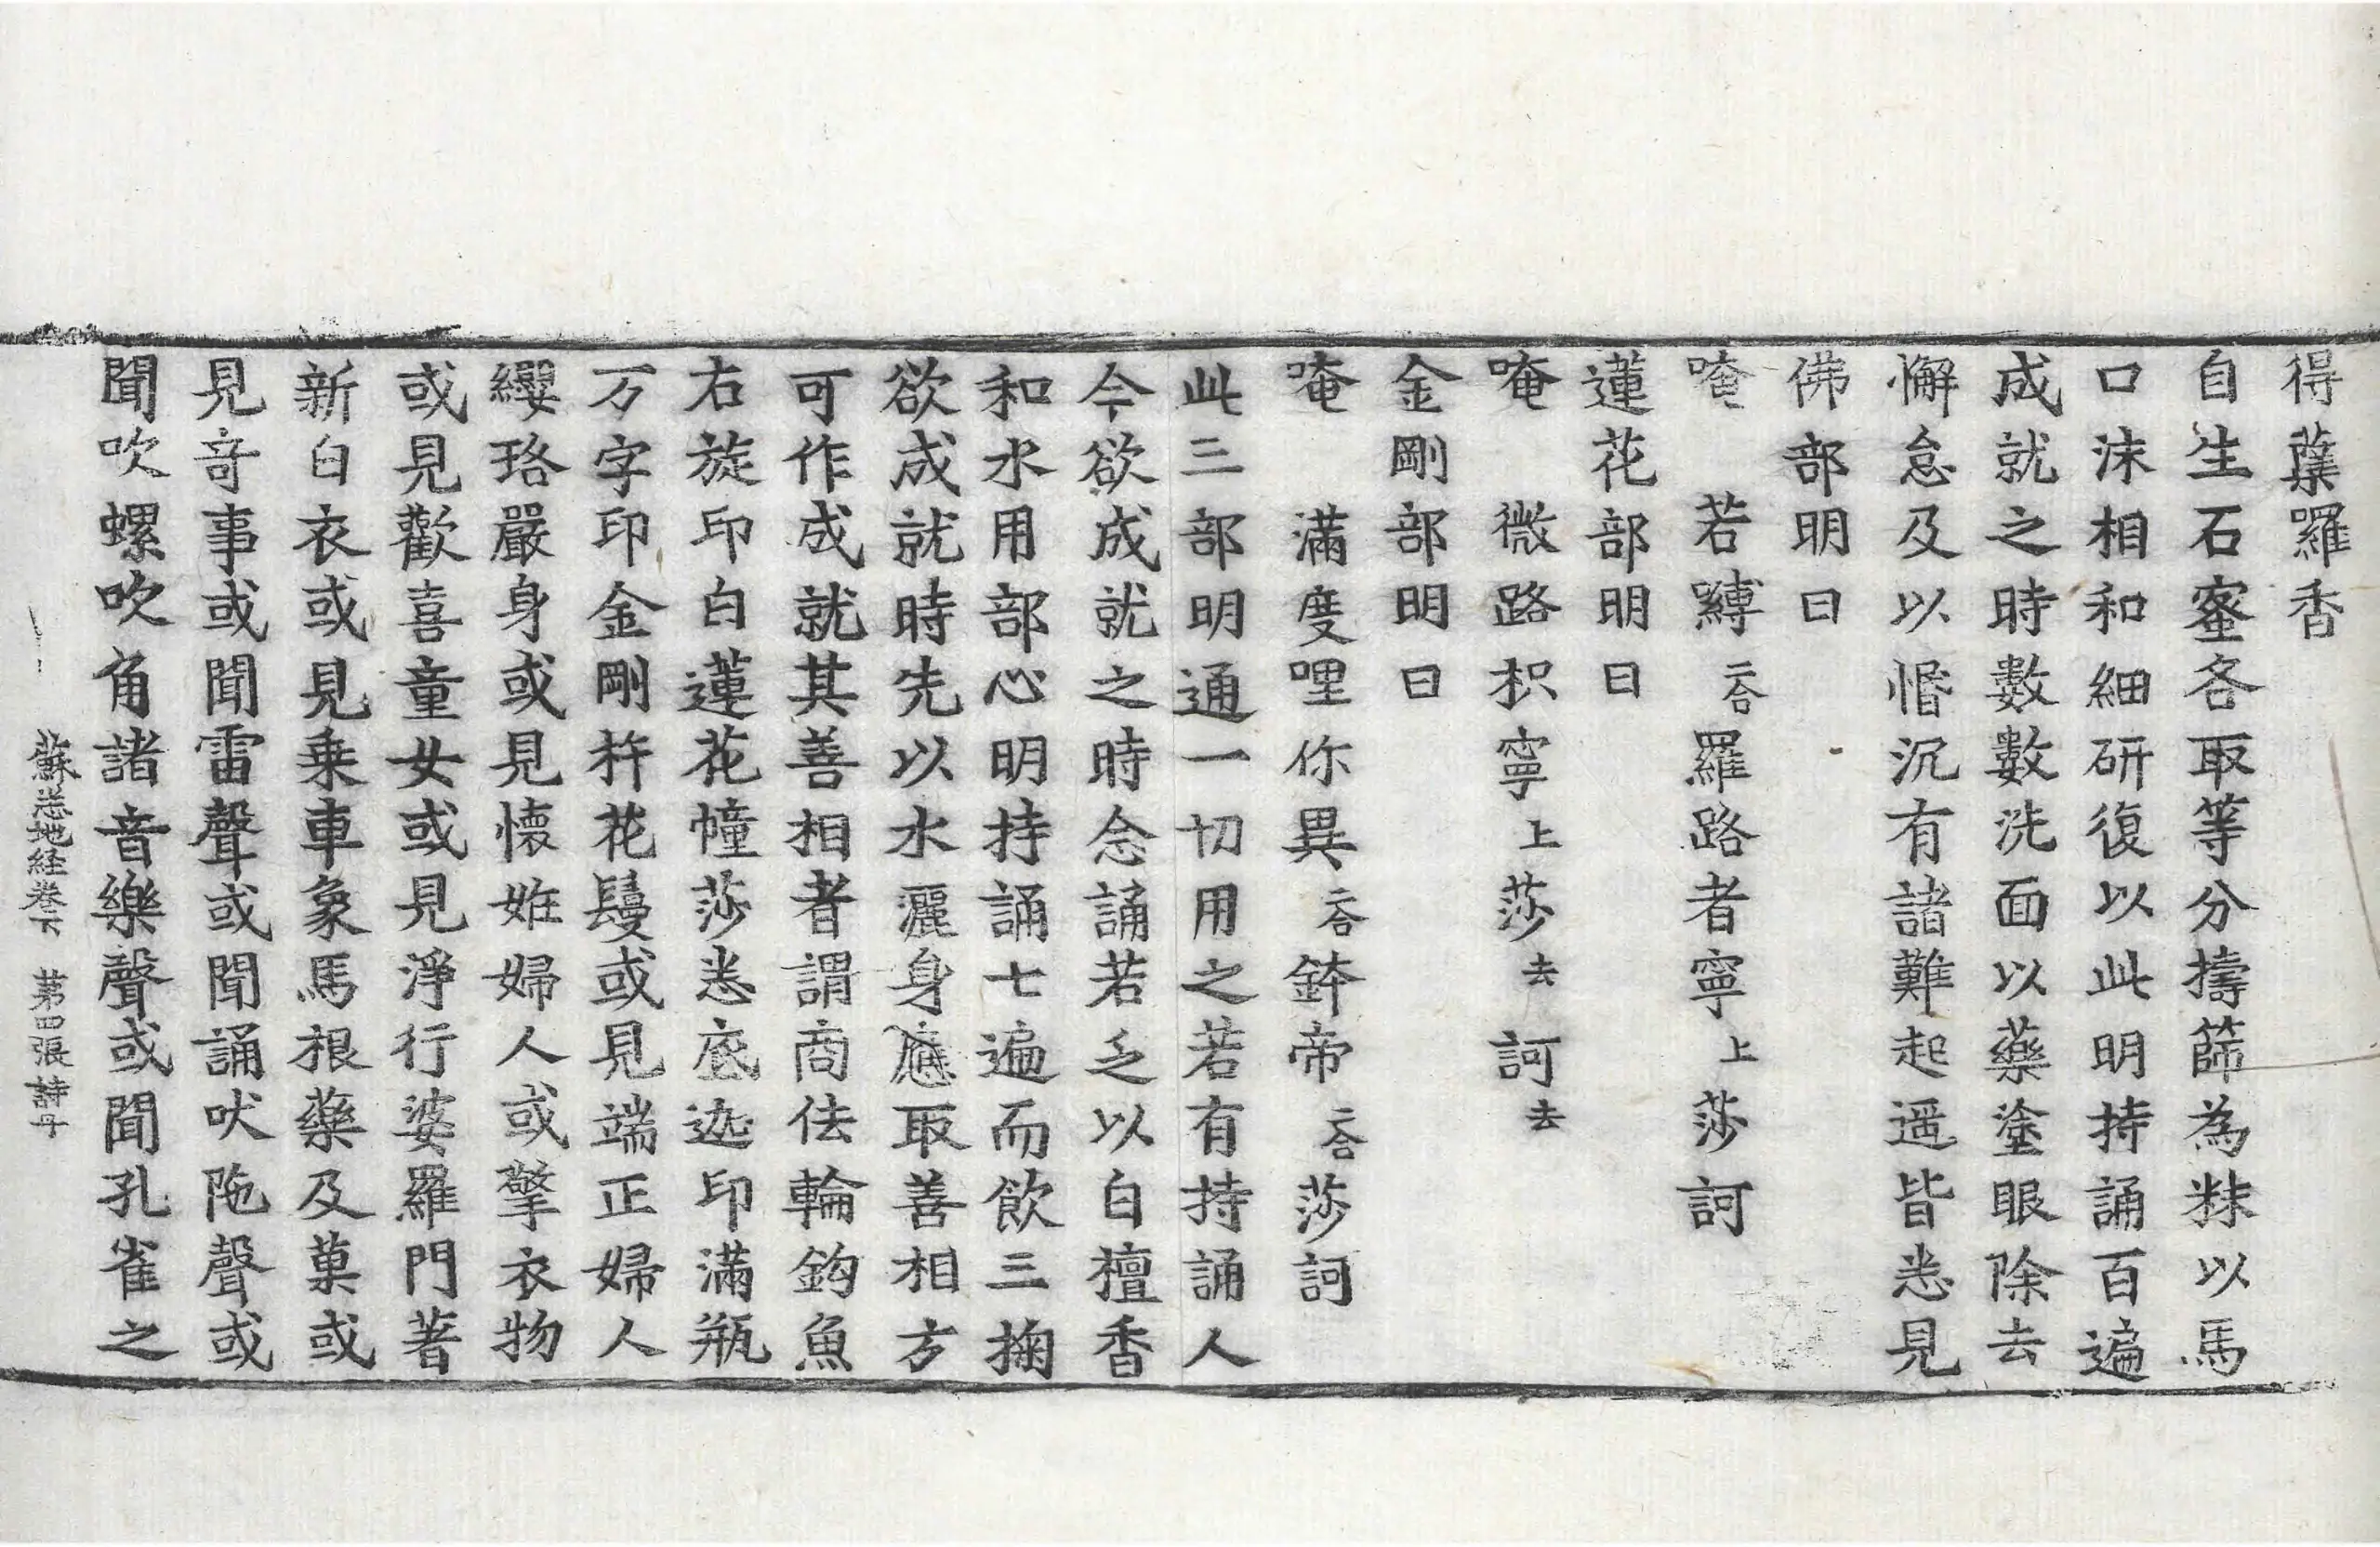 得蘗羅香
自生石蜜各取等分擣篩為粖以馬
口沫相和細研復以此明持誦百遍
成就之時數數洗面以藥塗眼除去
懈怠及以惛沉有諸難起遥皆悉見
佛部明曰
唵　若嚩二合羅路者寧上莎訶
蓮花部明曰
唵　微路枳寧上莎去訶去
金剛部明曰
唵　滿度哩你異二合鉢帝二合莎訶
此三部明通一切用之若有持誦人
今欲成就之時念誦若乏以白檀香
和水用部心明持誦七遍而飲三掬
欲成就時先以水灑身應取善相方
可作成就其善相者謂商佉輪鈎魚
右旋印白蓮花幢莎悉底迦印滿瓶
万字印金剛杵花鬘或見端正婦人
纓珞嚴身或見懷姙婦人或擎衣物
或見歡喜童女或見淨行婆羅門著
新白衣或見乗車象馬根藥及菓或
見奇事或聞雷聲或聞誦吠陁聲或
聞吹螺吹角諸音樂聲或聞孔雀之
蘇悉地経卷下　第四張詩